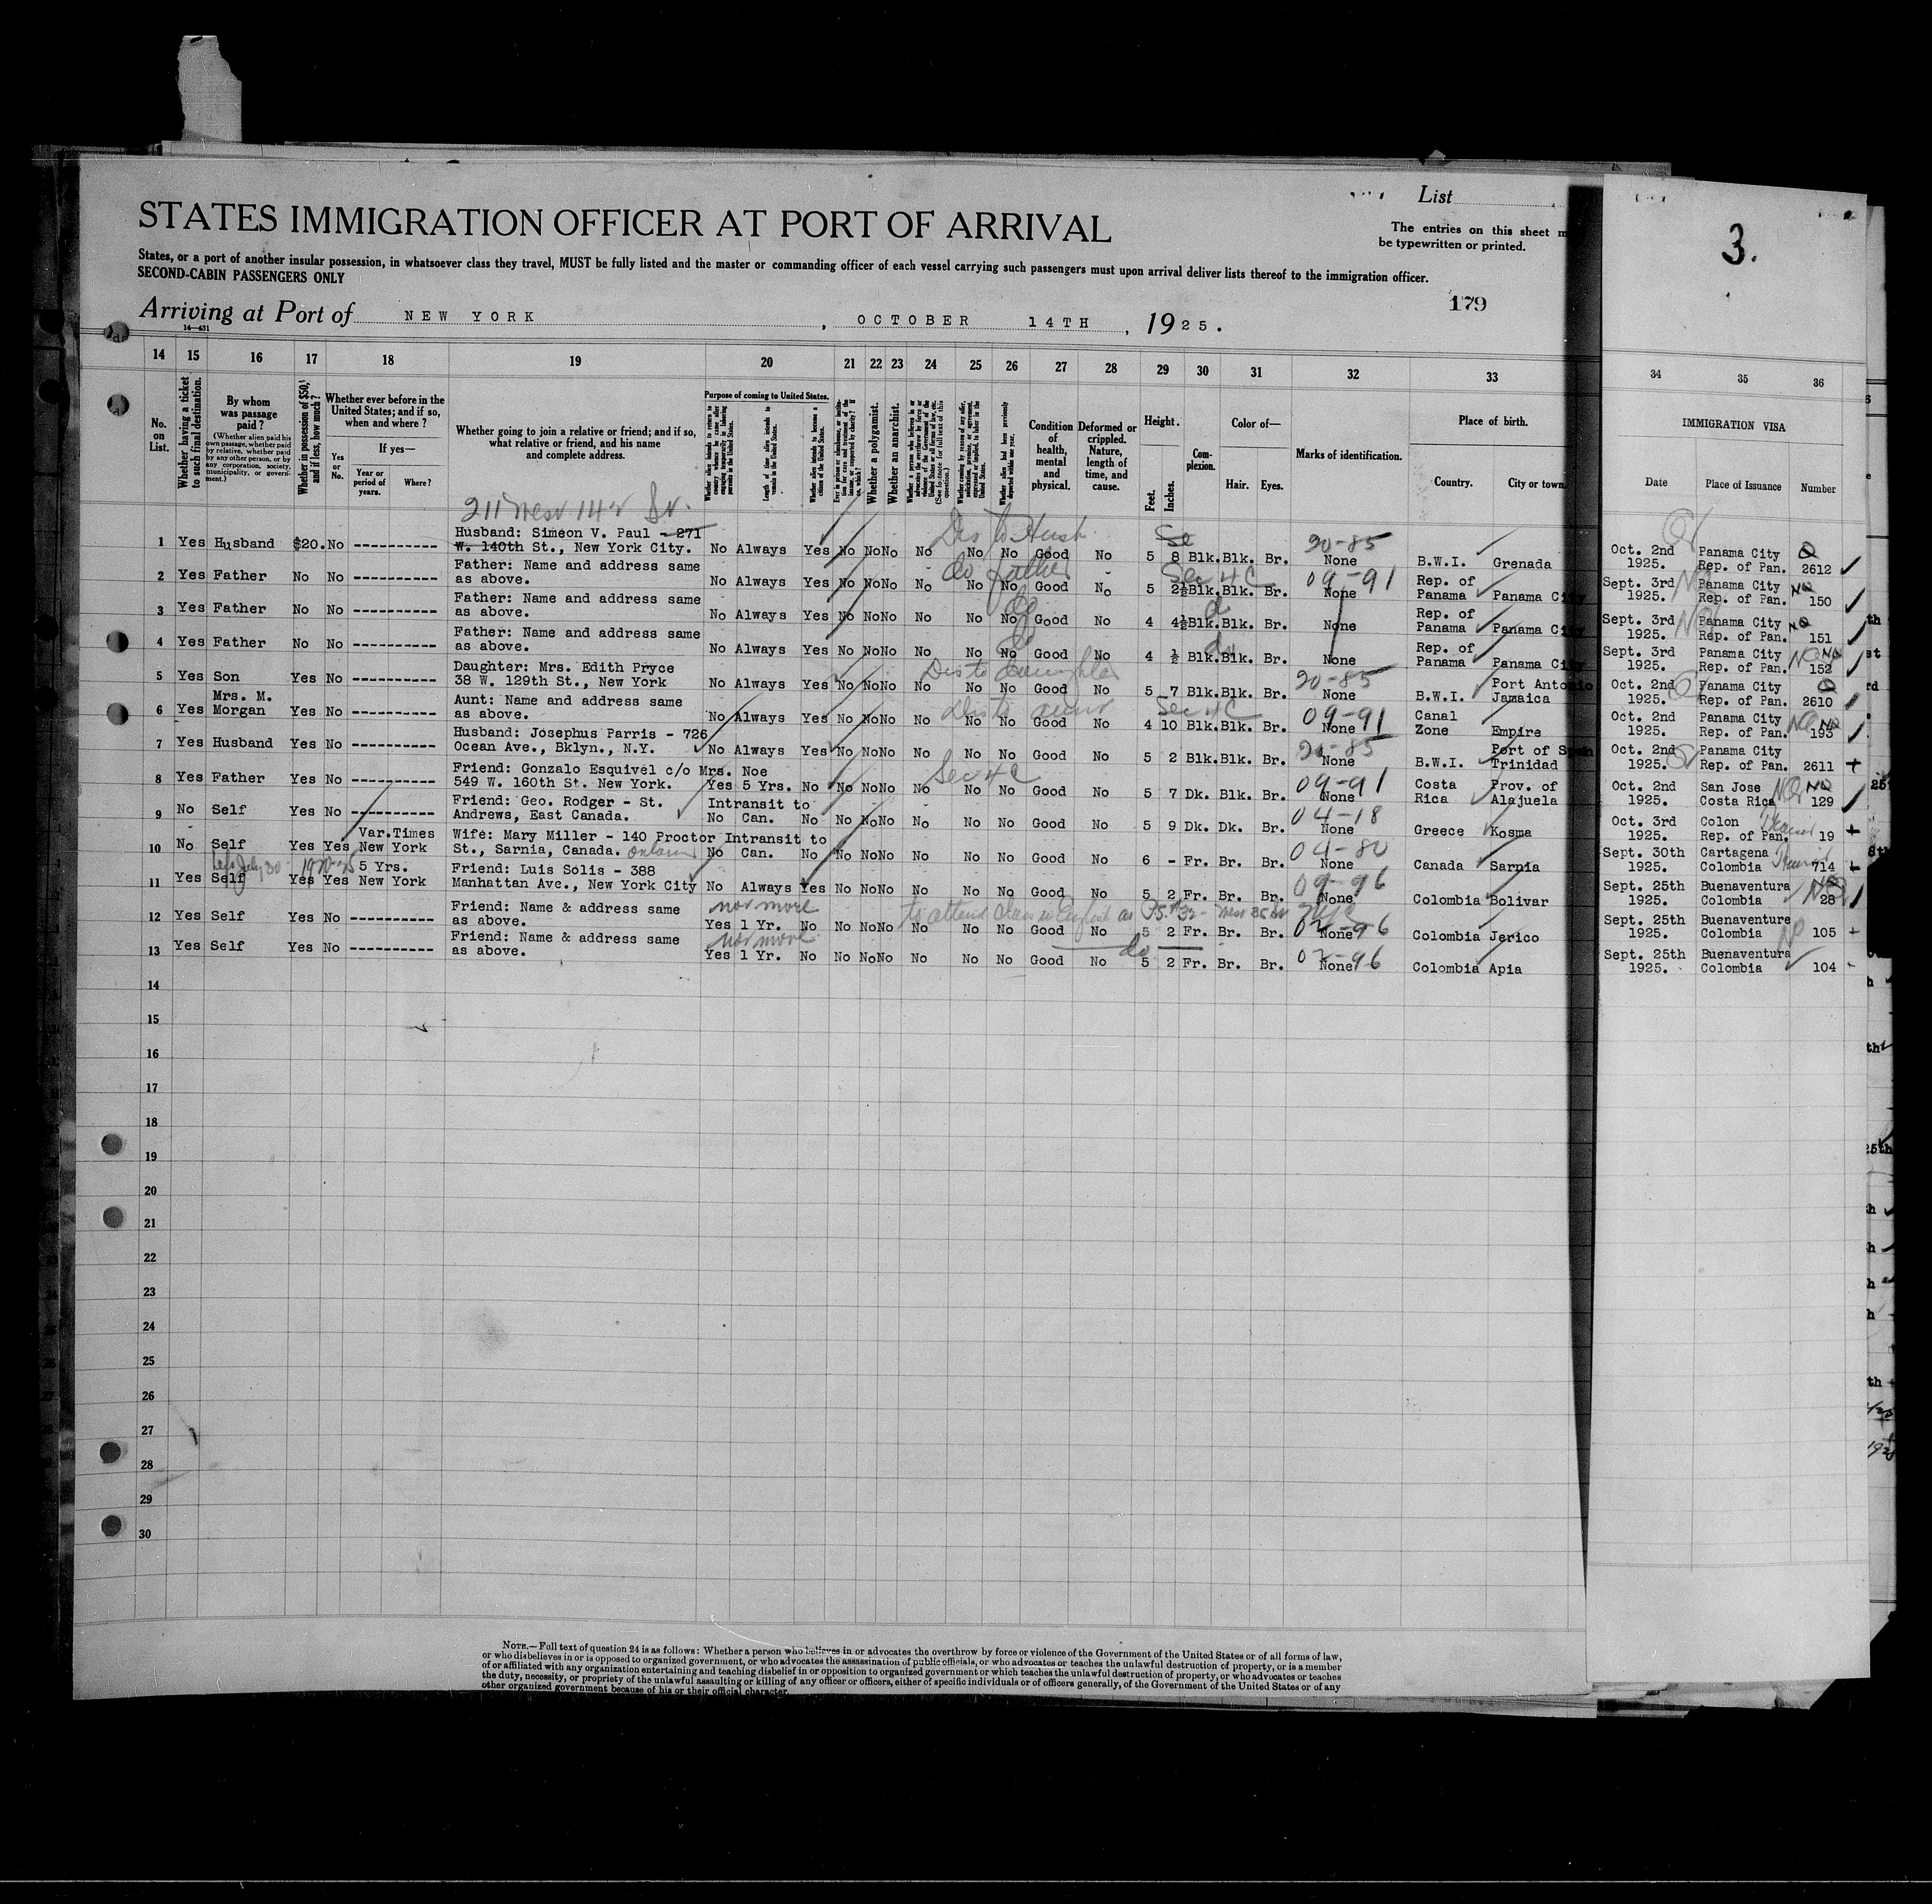 List
STATES IMMIGRATION OFFICER AT PORT OF ARRIVAL
The entries on this sheet m
be typewritten or printed.
3.
States, or a port of another insular possession, in whatsoever class they travel, MUST be fully listed and the master or commanding officer of each vessel carrying such passengers must upon arrival deliver lists thereof to the immigration officer.
SECOND-CABIN PASSENGERS ONLY
179
Arriving at Port of NEW YORK, OCTOBER 14TH, 1925.
14—431
14 15 16 17 18 19 20 21 22 23 24 25 26 27 28 29 30 31 32 33 34 35 36
No. on List.
Whether having a ticket to such final destination.
By whom was passage paid?
(Whether alien paid his own passage, whether paid by relative, whether paid by any other person, or by any corporation, society, municipality, or government.)
Whether in possession of $50, and if less, how much?
Whether ever before in the United States; and if so, when and where?
If yes—
Yes or No.
Year or period of years.
Where?
Whether going to join a relative or friend; and if so, what relative or friend, and his name and complete address.
Purpose of coming to United States.
Length of time alien intends to remain in the United States.
Whether alien intends to become a citizen of the United States.
Whether a polygamist.
Whether an anarchist.
Condition of health, mental and physical.
Deformed or crippled. Nature, length of time, and cause.
Height.
Feet. Inches.
Complexion.
Color of—
Hair. Eyes.
Marks of identification.
Place of birth.
Country. City or town
IMMIGRATION VISA
Date Place of Issuance Number
Dis to Hush 20-85
Husband: Simeon V. Paul - 271
1 Yes Husband $20. No ---------- W. 140th St., New York City. No Always Yes No No No No No No Good No 5 8 Blk. Blk. Br. None B.W.I. Grenada Oct. 2nd 1925. Panama City Rep. of Pan. 2612
do father Sec 4C 09-91
Father: Name and address same
2 Yes Father No No ---------- as above. No Always Yes No No No No No No Good No 5 2½ Blk. Blk. Br. None Rep. of Panama Panama City Sept. 3rd 1925. Panama City Rep. of Pan. 150
Father: Name and address same
3 Yes Father No No ---------- as above. No Always Yes No No No No No No Good No 4 4½ Blk. Blk. Br. None Rep. of Panama Panama City Sept. 3rd 1925. Panama City Rep. of Pan. 151
Father: Name and address same
4 Yes Father No No ---------- as above. No Always Yes No No No No No No Good No 4 ½ Blk. Blk. Br. None Rep. of Panama Panama City Sept. 3rd 1925. Panama City Rep. of Pan. 152
Dis to daughter 20-85
Daughter: Mrs. Edith Pryce
5 Yes Son Yes No ---------- 38 W. 129th St., New York No Always Yes No No No No No No Good No 5 7 Blk. Blk. Br. None B.W.I. Port Antonio Jamaica Oct. 2nd 1925. Panama City Rep. of Pan. 2610
Dis to aunt Sec 4C 09-91
Aunt: Name and address same
6 Yes Mrs. M. Morgan Yes No ---------- as above. No Always Yes No No No No No No Good No 4 10 Blk. Blk. Br. None Canal Zone Empire Oct. 2nd 1925. Panama City Rep. of Pan. 193
20-85
Husband: Josephus Parris - 726
7 Yes Husband Yes No ---------- Ocean Ave., Bklyn., N.Y. No Always Yes No No No No No No Good No 5 2 Blk. Blk. Br. None B.W.I. Port of Spain Trinidad Oct. 2nd 1925. Panama City Rep. of Pan. 2611
Sec 4C 09-91
Friend: Gonzalo Esquivel c/o Mrs. Noe
8 Yes Father Yes No ---------- 549 W. 160th St. New York. Yes 5 Yrs. No No No No No No No Good No 5 7 Dk. Blk. Br. None Costa Rica Prov. of Alajuela Oct. 2nd 1925. San Jose Costa Rica 129
04-18
Friend: Geo. Rodger - St. Intransit to
9 No Self Yes No ---------- Andrews, East Canada. No Can. No No No No No No No Good No 5 9 Dk. Dk. Br. None Greece Kosma Oct. 3rd 1925. Colon Rep. of Pan. 19
04-80
Var. Times Wife: Mary Miller - 140 Proctor Intransit to
10 No Self Yes Yes New York St., Sarnia, Canada. Ontario No Can. No No No No No No No Good No 6 - Fr. Br. Br. None Canada Sarnia Sept. 30th 1925. Cartagena Colombia 714
July 30 1920-25 09-96
5 Yrs. Friend: Luis Solis - 388
11 Yes Self Yes Yes New York Manhattan Ave., New York City No Always Yes No No No No No No Good No 5 2 Fr. Br. Br. None Colombia Bolivar Sept. 25th 1925. Buenaventura Colombia 28
Friend: Name & address same
12 Yes Self Yes No ---------- as above. Yes 1 Yr. No No No No No No No Good No 5 2 Fr. Br. Br. None Colombia Jerico Sept. 25th 1925. Buenaventure Colombia 105
not more do 02-96
Friend: Name & address same
13 Yes Self Yes No ---------- as above. Yes 1 Yr. No No No No No No No Good No 5 2 Fr. Br. Br. None Colombia Apia Sept. 25th 1925. Buenaventura Colombia 104
14
15
16
17
18
19
20
21
22
23
24
25
26
27
28
29
30
NOTE.—Full text of question 24 is as follows: Whether a person who believes in or advocates the overthrow by force or violence of the Government of the United States or of all forms of law,
or who disbelieves in or is opposed to organized government, or who advocates the assassination of public officials, or who advocates or teaches the unlawful destruction of property, or is a member
of or affiliated with any organization entertaining and teaching disbelief in or opposition to organized government or which teaches the unlawful destruction of property, or who advocates or teaches
the duty, necessity, or propriety of the unlawful assaulting or killing of any officer or officers, either of specific individuals or of officers generally, of the Government of the United States or of any
other organized government because of his or their official character.